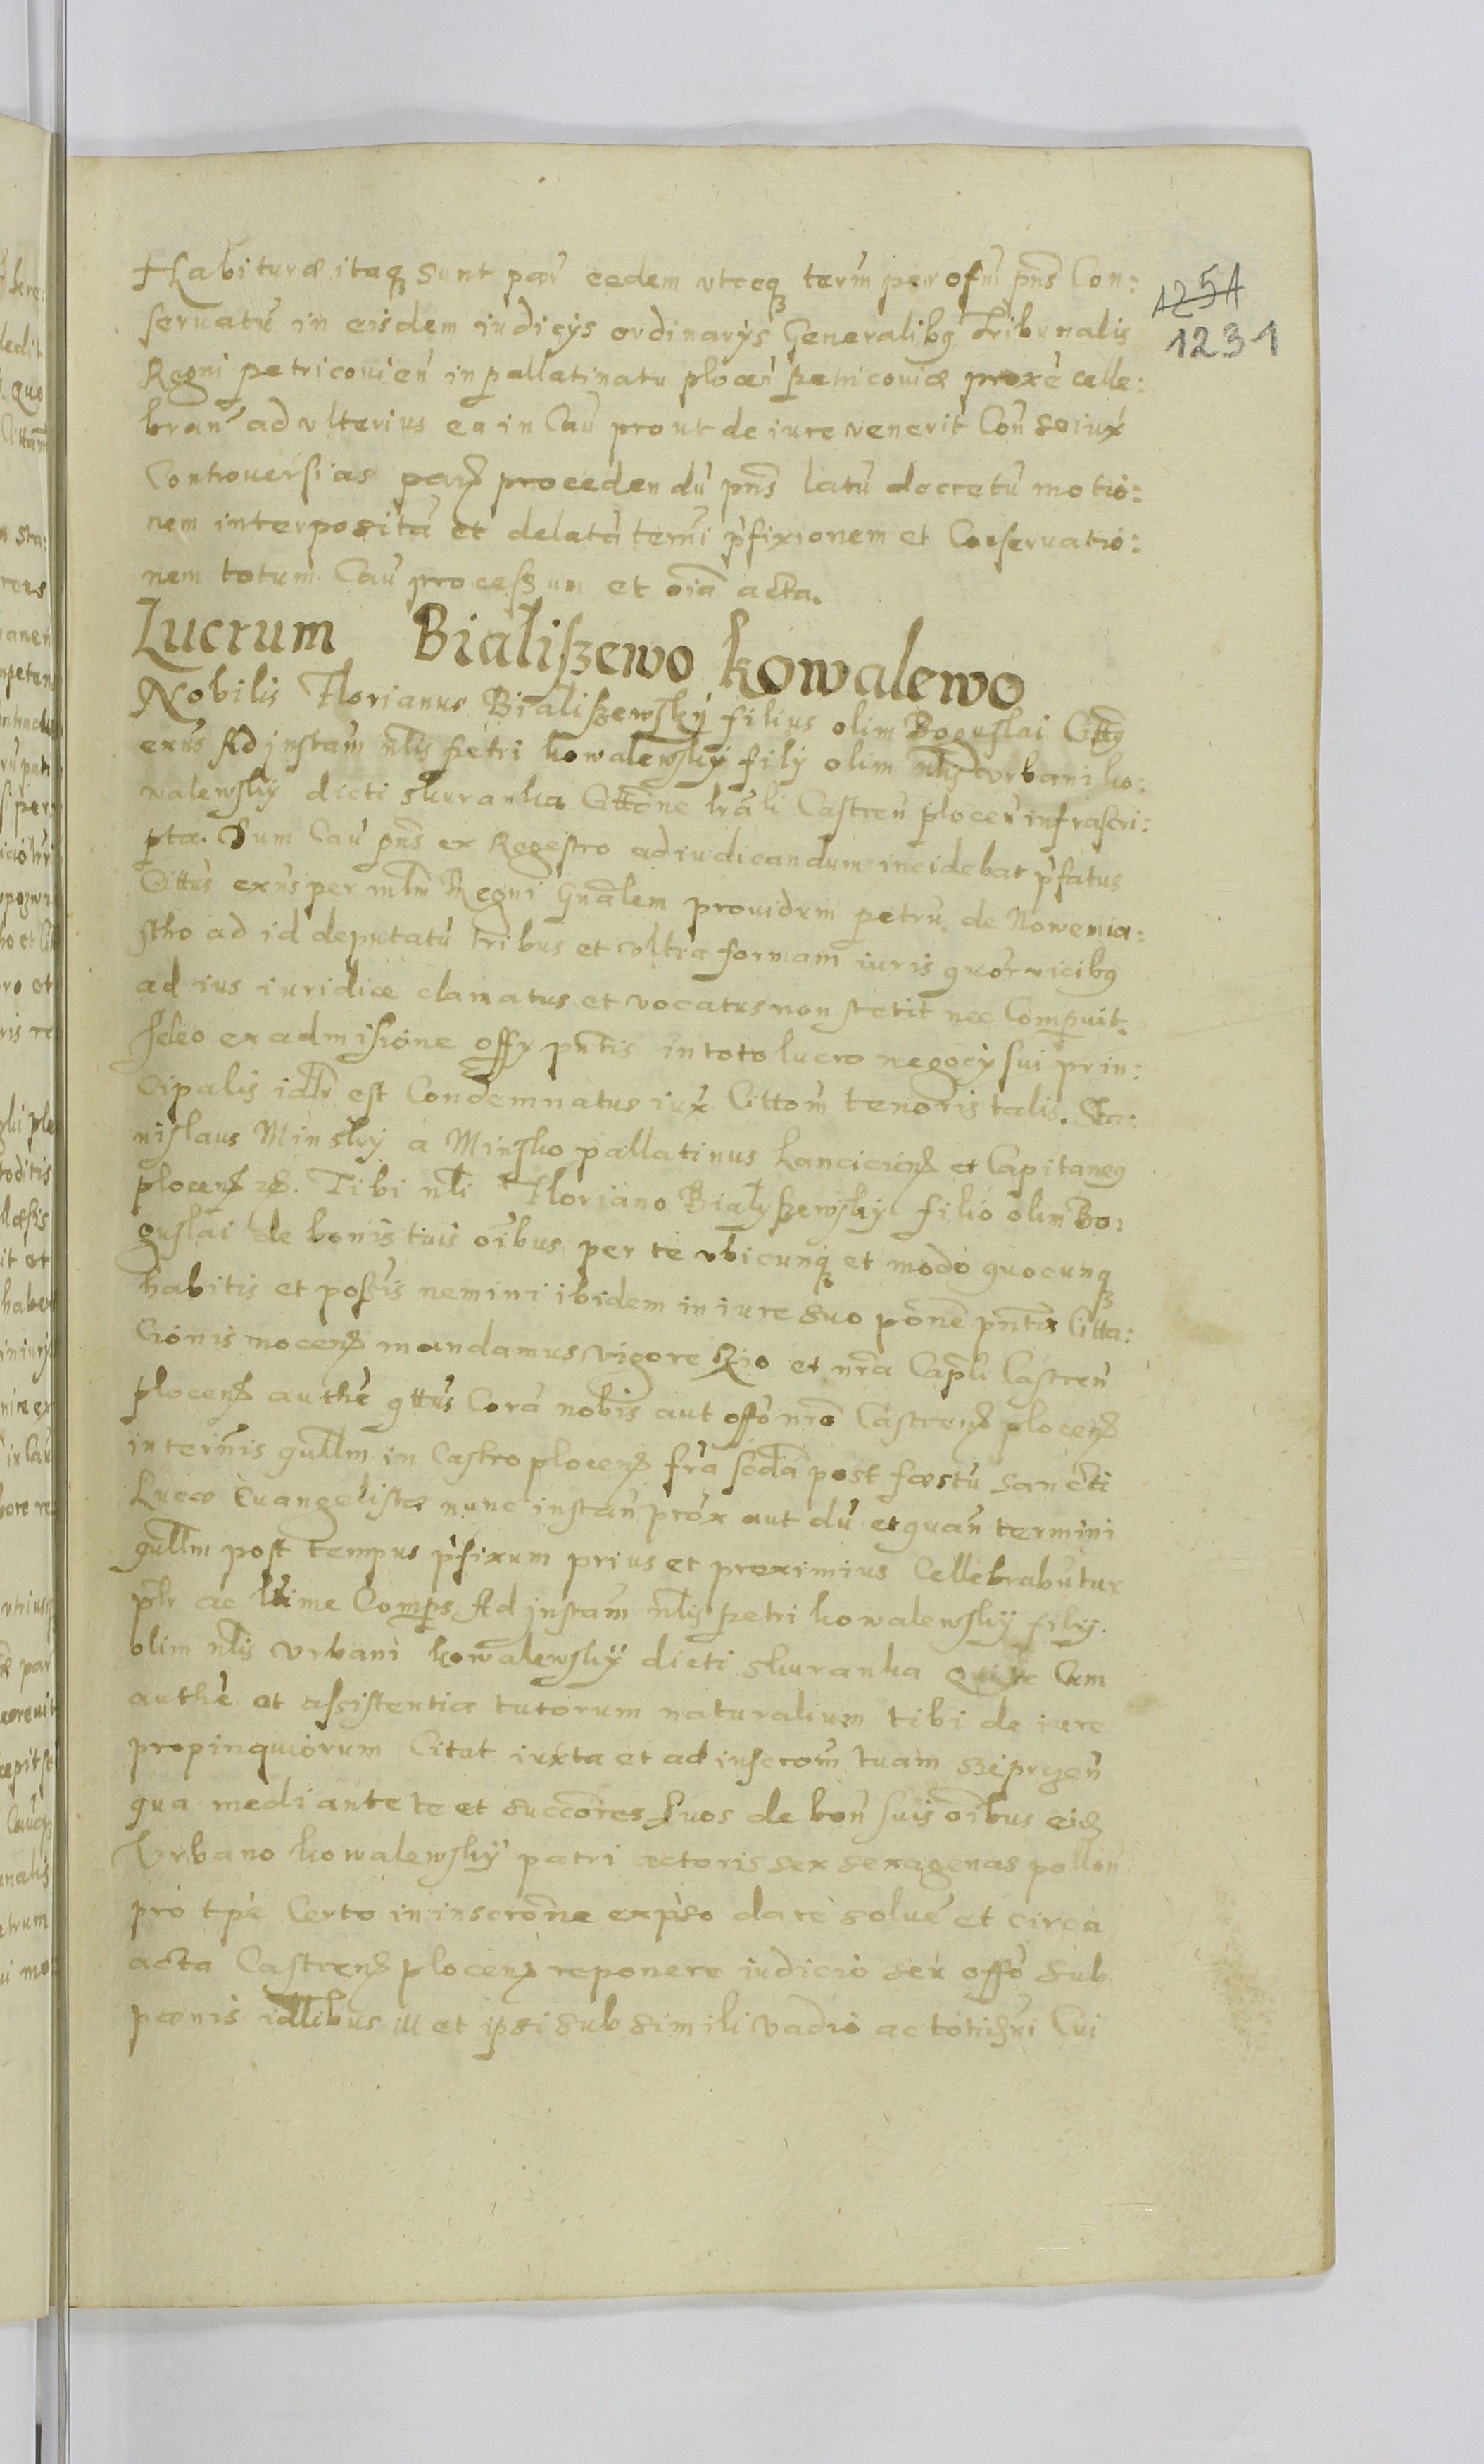 Habituræ itaq sunt par eedem vtreq term per ofm pns Con:
1254
seruatu in eisdem iudicys ordinarys Generalibq Tribunalis
1231
Regni petricouien in pallatinatu ploceń petricouiæ proxe celle:
bran ad vlterius ea in Cau prout de iure venerit Con se iux
Controuersias par proceden du pns latu decretu motio:
nem interposita et delata termi pfixionem et Conseruatio:
nem totum Cau processum et oia acta.
Lucrum Bialiszewo kowalewo
Nobilis Florianus Bialiszewsky filius olim Boguslai Cittq
exns Ad jnstam nlis petri kowalewsky fily olim nlis vrbani ko:
walewsky dicti skuranka Cittone lrali Castren plocen infrascri:
pta. Dum Cau pns ex Regestro adiudicandum incidebat pfatus
Cittus exns per mlm Regni Gnalem prouidum petru de Nowemia:
stho ad id deputatu tribus et vltra formam iuris quor vicibq
ad ius iuridice clamatus et vocatus non stetit nec Compuit.
Ideo ex admissione offy pntis in toto lucro negocy sui prin:
cipalis idlr est Condemnatus iux Cittom tenoris talis. Sta:
nislaus Minsky a Minsko pallatinus Lanciciens et Capitaneq
plocens Tibi nli Floriano Bialyszewsky filio olim Bo:
guslai de bonis tuis oibus per te vbicunq et modo quocunq
habitis et possis nemini ibidem in iure suo pone pntis Citta:
cionis nocens mandamus vigore Rio et nra Capli Castren
plocens authe qttus Cora nobis aut offo nro Castrens plocens
in termis qullm in Castro plocens fra scda post fæstu sancti
Lucæ Euangelistæ nunc instan prox aut du et quan termini
qullm post tempus pfixum prius et proximius Cellebrabutur
plr ac Comps Ad jnstam nlis petri kowalewsky fily
olim nlis vrbani kowalewsky dicti skuranka Qui te Cum
authe et assistentia tutorum naturalium tibi de iure
propinquiorum Citat iuxta et ad inscrom tuam
qua mediante te et succores tuos de bon suis oibus
Vrbano kowalewsky patri actoris sex sexagenas pollon
pro tpe Certo in inscrone expso dare solue et circa
acta Castrens plocens reponere iudicio seu offo sub
pœnis idlibus et ipsi sub simili vadio ac Cui